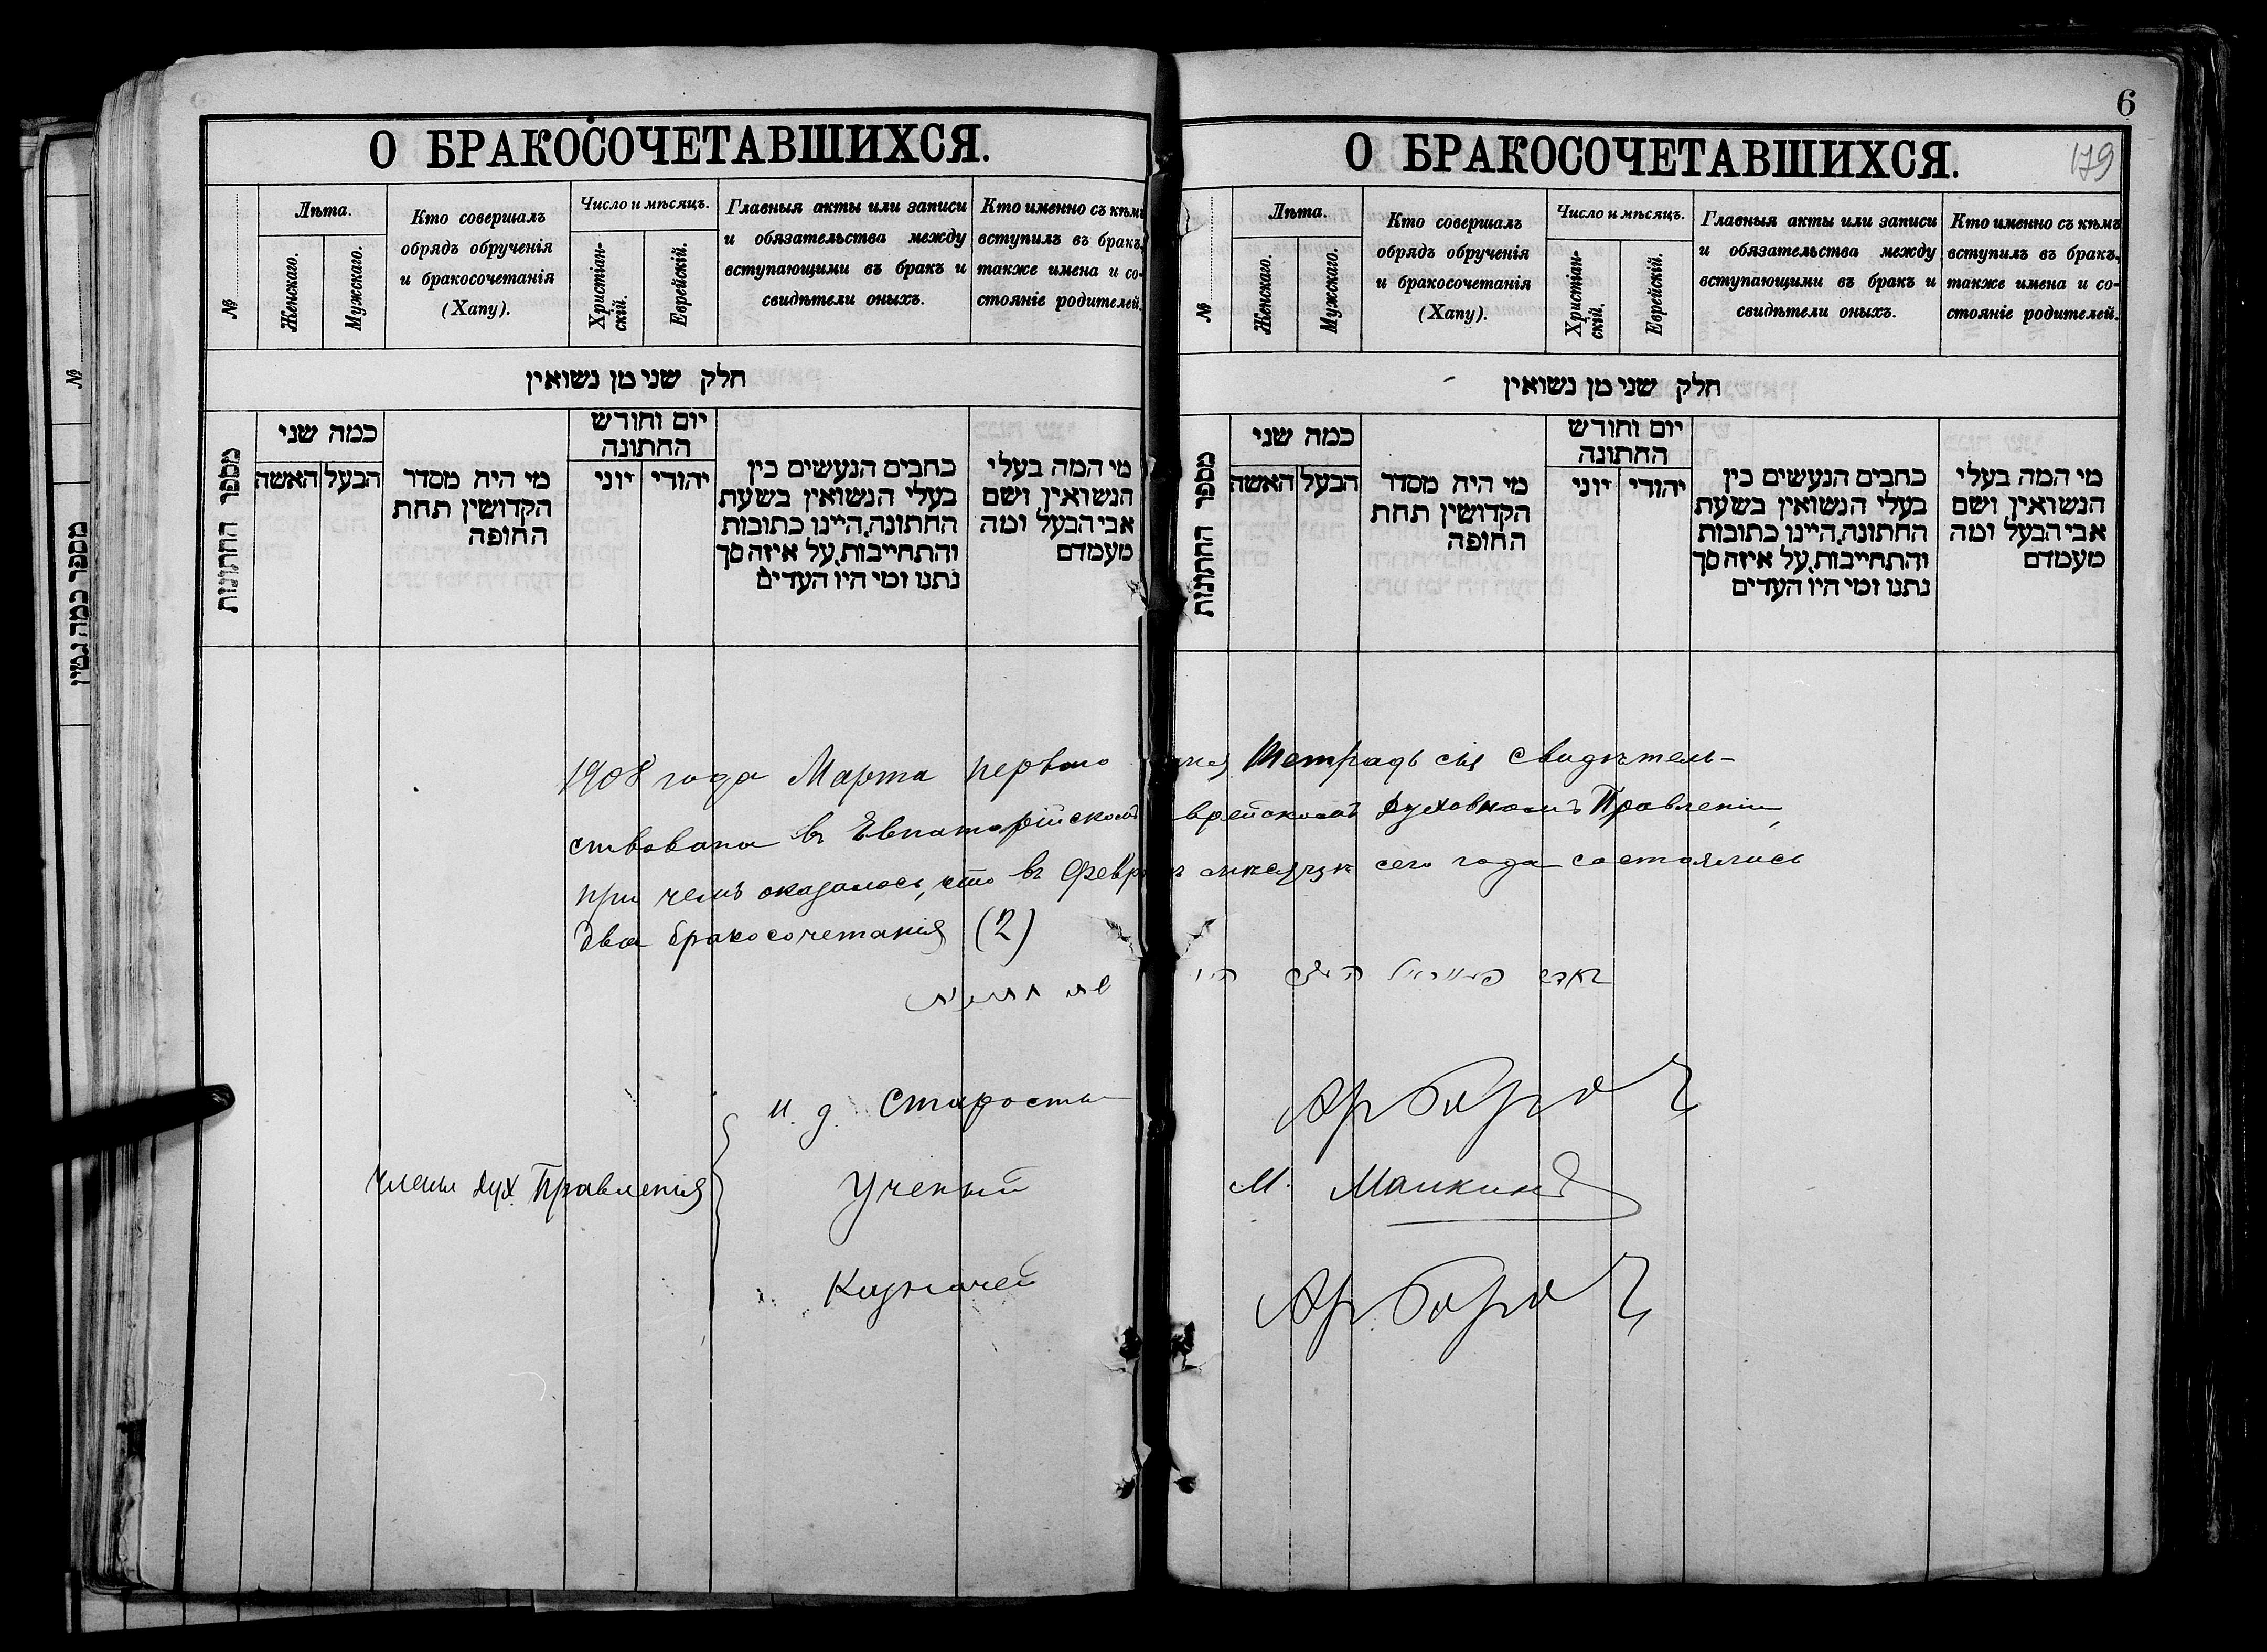 О БРАКОСОЧЕТАВШИХСЯ.
№
Лѣта.
Женскаго.
Мужскаго.
Кто совершалъ
обрядъ обрученія
и бракосочетанія
(Хапу).
Число и мѣсяцъ.
Христіан-
скій.
Еврейскій.
Главныя акты или записи
и обязательства между
вступающими въ бракъ и
свидѣтели оныхъ.
Кто именно съ кѣмъ
вступилъ въ бракъ,
также имена и со-
стояніе родителей.
חלק שני מן נשואין
מספר החתונות
כמה שני
הבעל
האשה
מי היה מסדר
הקדושין תחת
החופה
יום וחודש
החתונה
יהודי
יוני
כתבים הנעשים בין
בעלי הנשואין בשעת
החתונה, היינו כתובות
והתחייבות, על איזה סך
נתנו ומי היו העדים
מי המה בעלי
הנשואין ושם
אבי הבעל ומה
מעמדם
6
179
О БРАКОСОЧЕТАВШИХСЯ.
№
Лѣта.
Женскаго.
Мужскаго.
Кто совершалъ
обрядъ обрученія
и бракосочетанія
(Хапу).
Число и мѣсяцъ.
Христіан-
скій.
Еврейскій.
Главныя акты или записи
и обязательства между
вступающими въ бракъ и
свидѣтели оныхъ.
Кто именно съ кѣмъ
вступилъ въ бракъ,
также имена и со-
стояніе родителей.
חלק שני מן נשואין
מספר החתונות
כמה שני
הבעל
האשה
מי היה מסדר
הקדושין תחת
החופה
יום וחודש
החתונה
יהודי
יוני
כתבים הנעשים בין
בעלי הנשואין בשעת
החתונה, היינו כתובות
והתחייבות, על איזה סך
נתנו ומי היו העדים
מי המה בעלי
הנשואין ושם
אבי הבעל ומה
מעמדם
№
מספר כמה גטין
1908 года Марта перваго дня Тетрадь сія свидѣтель-
ствована въ Евпаторійскомъ Еврейскомъ Духовномъ Правленіи,
при чемъ оказалось, что въ Февралѣ мѣсяцѣ сего года состоялись
два бракосочетанія (2)
И. д. Старосты
Члены Дух. Правленія
Ученый М.
Казначей